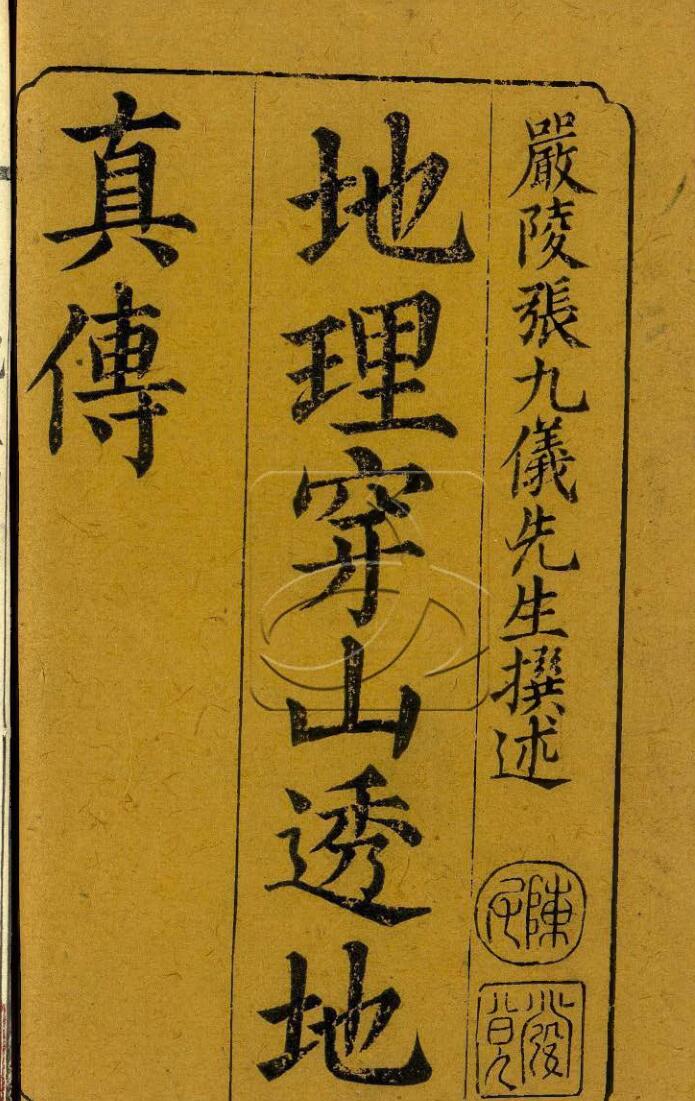 嚴陵張九儀先生撰述
地理穿山透地
真傳